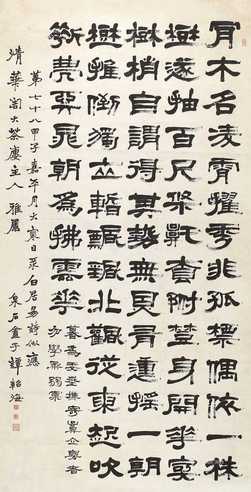 有木名凌霄擢秀非孤標偶依一株
樹遂抽百尺條託根附樹身開花寄
樹梢自謂得其勢無因有動搖一朝
樹摧倒獨立暫飄颻疾風從東起吹
折不終朝朝為拂雲花
暮為委地樵寄言立身者
勿學柔弱苗
第七十八甲子嘉平月大寒日录白居易詩似應
主人雅屬